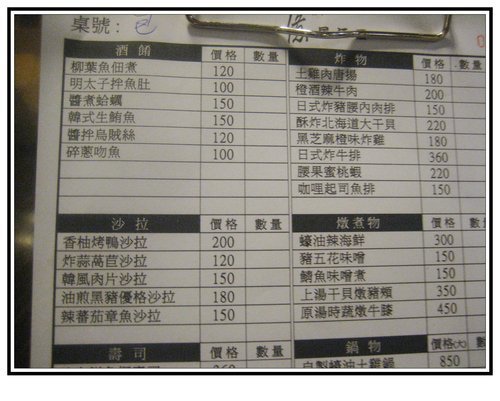 桌號：
酒餚 價格 數量
柳葉魚佃煮 120
明太子拌魚肚 100
醬煮蛤蠣 150
韓式生鮪魚 150
醬拌烏賊絲 120
碎蔥吻魚 100
炸物 價格 數量
土雞肉唐揚 180
橙酒辣牛肉 200
日式炸豬腰內肉排 150
酥炸北海道大干貝 220
黑芝麻橙味炸雞 180
日式炸牛排 360
腰果蜜桃蝦 220
咖哩起司魚排 150
沙拉 價格 數量
香柚烤鴨沙拉 200
炸蒜萵苣沙拉 120
韓風肉片沙拉 150
油煎黑豬優格沙拉 180
辣蕃茄章魚沙拉 150
燉煮物 價格 數量
蠔油辣海鮮 300
豬五花味噌 150
鯖魚味噌煮 150
上湯干貝燉豬頰 350
原湯時蔬燉牛膝 450
壽司 價格 數量
鍋物 價格(大)
自製蠔油土雞鍋 850